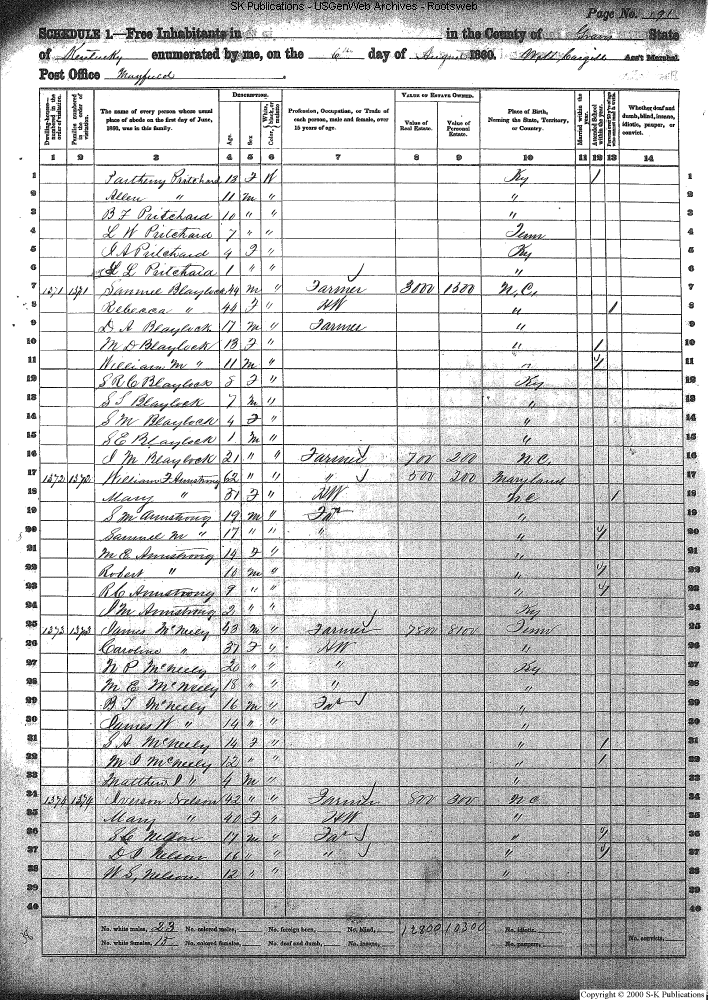 SK Publications - USGenWeb Archives - Rootsweb
Page No. 191
SCHEDULE 1.—Free Inhabitants in in the County of Graves State
of Kentucky enumerated by me, on the 6th day of August 1860. Ass't Marshal.
Post Office Mayfield
Dwelling-houses—numbered in the order of visitation.
Families numbered in the order of visitation.
The name of every person whose usual place of abode on the first day of June, 1860, was in this family.
DESCRIPTION.
Age.
Sex.
Color, White, black, or mulatto.
Profession, Occupation, or Trade of each person, male and female, over 15 years of age.
VALUE OF ESTATE OWNED.
Value of Real Estate.
Value of Personal Estate.
Place of Birth, Naming the State, Territory, or Country.
Married within the year.
Attended School within the year.
Whether deaf and dumb, blind, insane, idiotic, pauper, or convict.
1 2 3 4 5 6 7 8 9 10 11 12 13 14
1 Partheny Pritchard 13 F W Ky / 1
2 Allen " 11 m " " 2
3 B F Pritchard 10 " " " 3
4 L W Pritchard 7 " " Tenn 4
5 J A Pritchard 4 F " Ky 5
6 L Pritchard 1 " " " 6
7 1371 1371 Samuel Blaylock 44 m " Farmer 3000 1500 N.C. 7
8 Rebecca " 44 F " HW " / 8
9 D A Blaylock 17 m " Farmer " 9
10 M D Blaylock 13 F " " / 10
11 William M " 11 m " " / 11
12 S R C Blaylock 8 F " Ky 12
13 S S Blaylock 7 m " " 13
14 S M Blaylock 4 F " " 14
15 S E Blaylock 1 m " " 15
16 J M Blaylock 21 " " Farmer 700 200 N.C. 16
17 1372 1372 William F Armstrong 62 " " " 500 200 Maryland 17
18 Mary " 51 F " HW NC / 18
19 S M Armstrong 19 m " Far " 19
20 Samuel M " 17 " " " " / 20
21 M E Armstrong 14 F " " 21
22 Robert " 10 m " " / 22
23 R C Armstrong 9 " " " / 23
24 J M Armstrong 2 " " Ky 24
25 1373 1373 James McNeely 43 m " Farmer 7800 8100 Tenn 25
26 Caroline " 37 F " HW " 26
27 N P McNeely 20 " " " Ky 27
28 M E McNeely 18 " " " " 28
29 B T McNeely 16 m " Far " 29
30 James W " 14 " " " 30
31 S A McNeely 14 F " " / 31
32 M J McNeely 12 " " " / 32
33 Matthew J " 4 m " " 33
34 1374 1374 Iverson Nelson 42 " " Farmer 800 300 N.C 34
35 Mary " 40 F " HW " 35
36 S C Nelson 17 m " Far " / 36
37 D J Nelson 16 " " " " / 37
38 W S, Nelson 12 " " " 38
39 39
40 40
No. white males, 23 No. colored males, No. foreign born, No. blind, 12800 10300 No. idiotic,
No. white females, 15 No. colored females, No. deaf and dumb, No. insane, No. paupers, No. convicts,
Copyright © 2000 S-K Publications